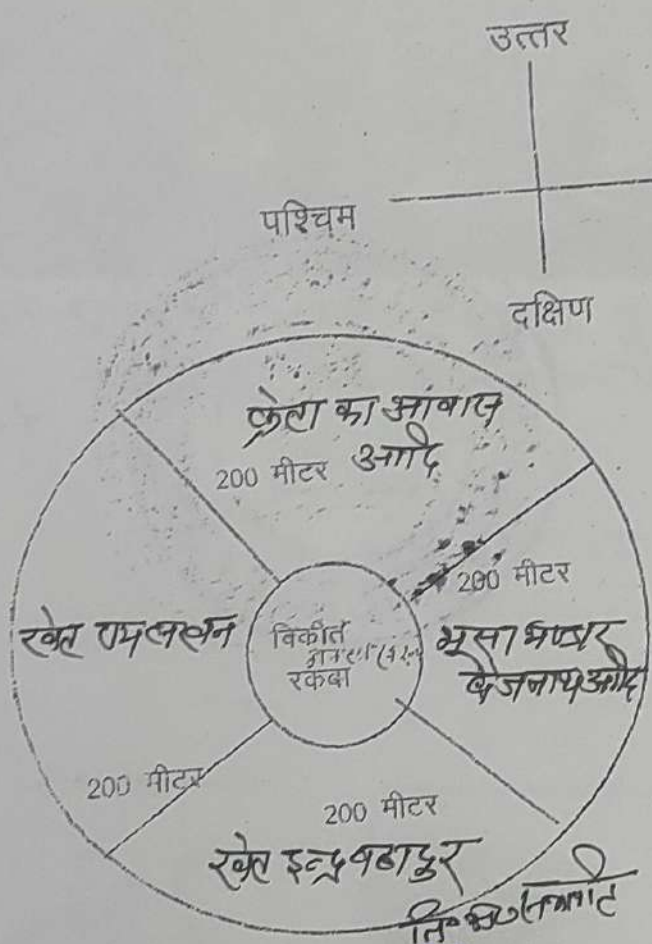 उत्तर
पश्चिम
दक्षिण
क्रेता का आवास
आदि
200 मीटर
200 मीटर
खेत रामलखन
विक्रीत
रकबा
भूसा भण्डार
बैजनाथ आदि
200 मीटर
200 मीटर
खेत इन्द्रबहादुर